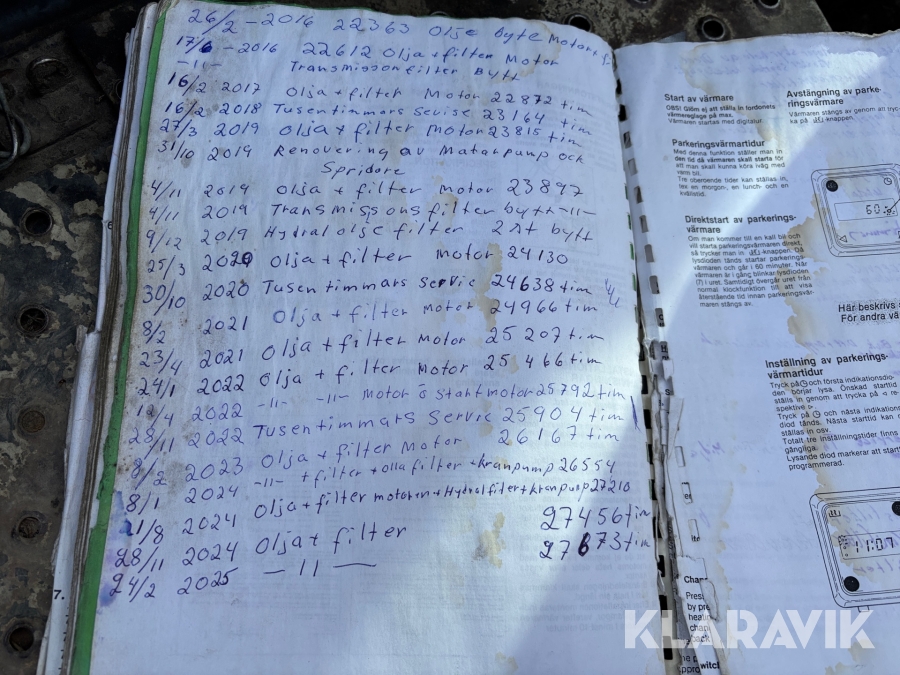 26/2 - 2016 22363 Olje byte Motor
17/6 - 2016 22612 Olja + filter Motor
-11- Transmissonfilter Bytt
16/2 2017 Olja + filter Motor 22872 tim
16/2 2018 Tusentimmars Sevise 23164 tim
27/3 2019 Olja + filter Motor 23815 tim
31/10 2019 Renovering av Matarpump och
Spridare
4/11 2019 Olja + filter motor 23897
4/11 2019 Transmissons filter bytt -11-
9/12 2019 Hydralolje filter 2st bytt
25/3 2020 Olja + filter motor 24130
30/10 2020 Tusentimmars Servic 24638 tim
8/2 2021 Olja + filter motor 24966 tim
23/4 2021 Olja + filter Motor 25207 tim
24/1 2022 Olja + filter Motor 25466 tim
12/4 2022 -11- -11- Motor & Startmotor 25792 tim
28/11 2022 Tusentimmars Servic 25904 tim
2023 Olja + filter Motor 26167 tim
8/1 2024 -11- + filter + olla filter + kranpump 26554
21/8 2024 Olja + filter motoren + Hydralfilter + kranpump 27210
28/11 2024 Olja + filter 27456 tim
24/2 2025 -11- 27673 tim
7.
Start av värmare
OBS! Glöm ej att ställa in fordonets
värmereglage på max.
Värmaren startas med digitalur.
Parkeringsvärmartidur
Med denna funktion ställer man in
den tid då värmaren skall starta för
att man skall kunna köra iväg med
varm bil.
Tre oberoende tider kan ställas in,
tex en morgon-, en lunch- och en
kvällstid.
Direktstart av parkerings-
värmare
Om man kommer till en kall bil och
vill starta parkeringsvärmaren direkt,
så trycker man in -knappen. Då
lysdioden tänds startar parkerings-
värmaren och går i 60 minuter. När
värmaren är i gång blinkar lysdioden
(7) i uret. Samtidigt övergår uret från
normal klockfunktion till att visa
återstående tid innan parkeringsvär-
maren stängs av.
Avstängning av parke-
ringsvärmare
Värmaren stängs av genom att tryc-
ka på -knappen.
60:
Här beskrivs
För andra vä
Inställning av parkerings-
värmartidur
Tryck på och första indikationsdio-
den börjar lysa. Önskad starttid kan
ställas in genom att trycka på a re-
spektive
Tryck på och nästa indikations
diod tänds. Nästa starttid kan
ställas in osv.
Totalt tre inställningstider finns
gängliga.
Lysande diod markerar att start
programmerad.
11:07
Chan
Press
by pre
heatin
chan
pack
switch
KLARAVIK